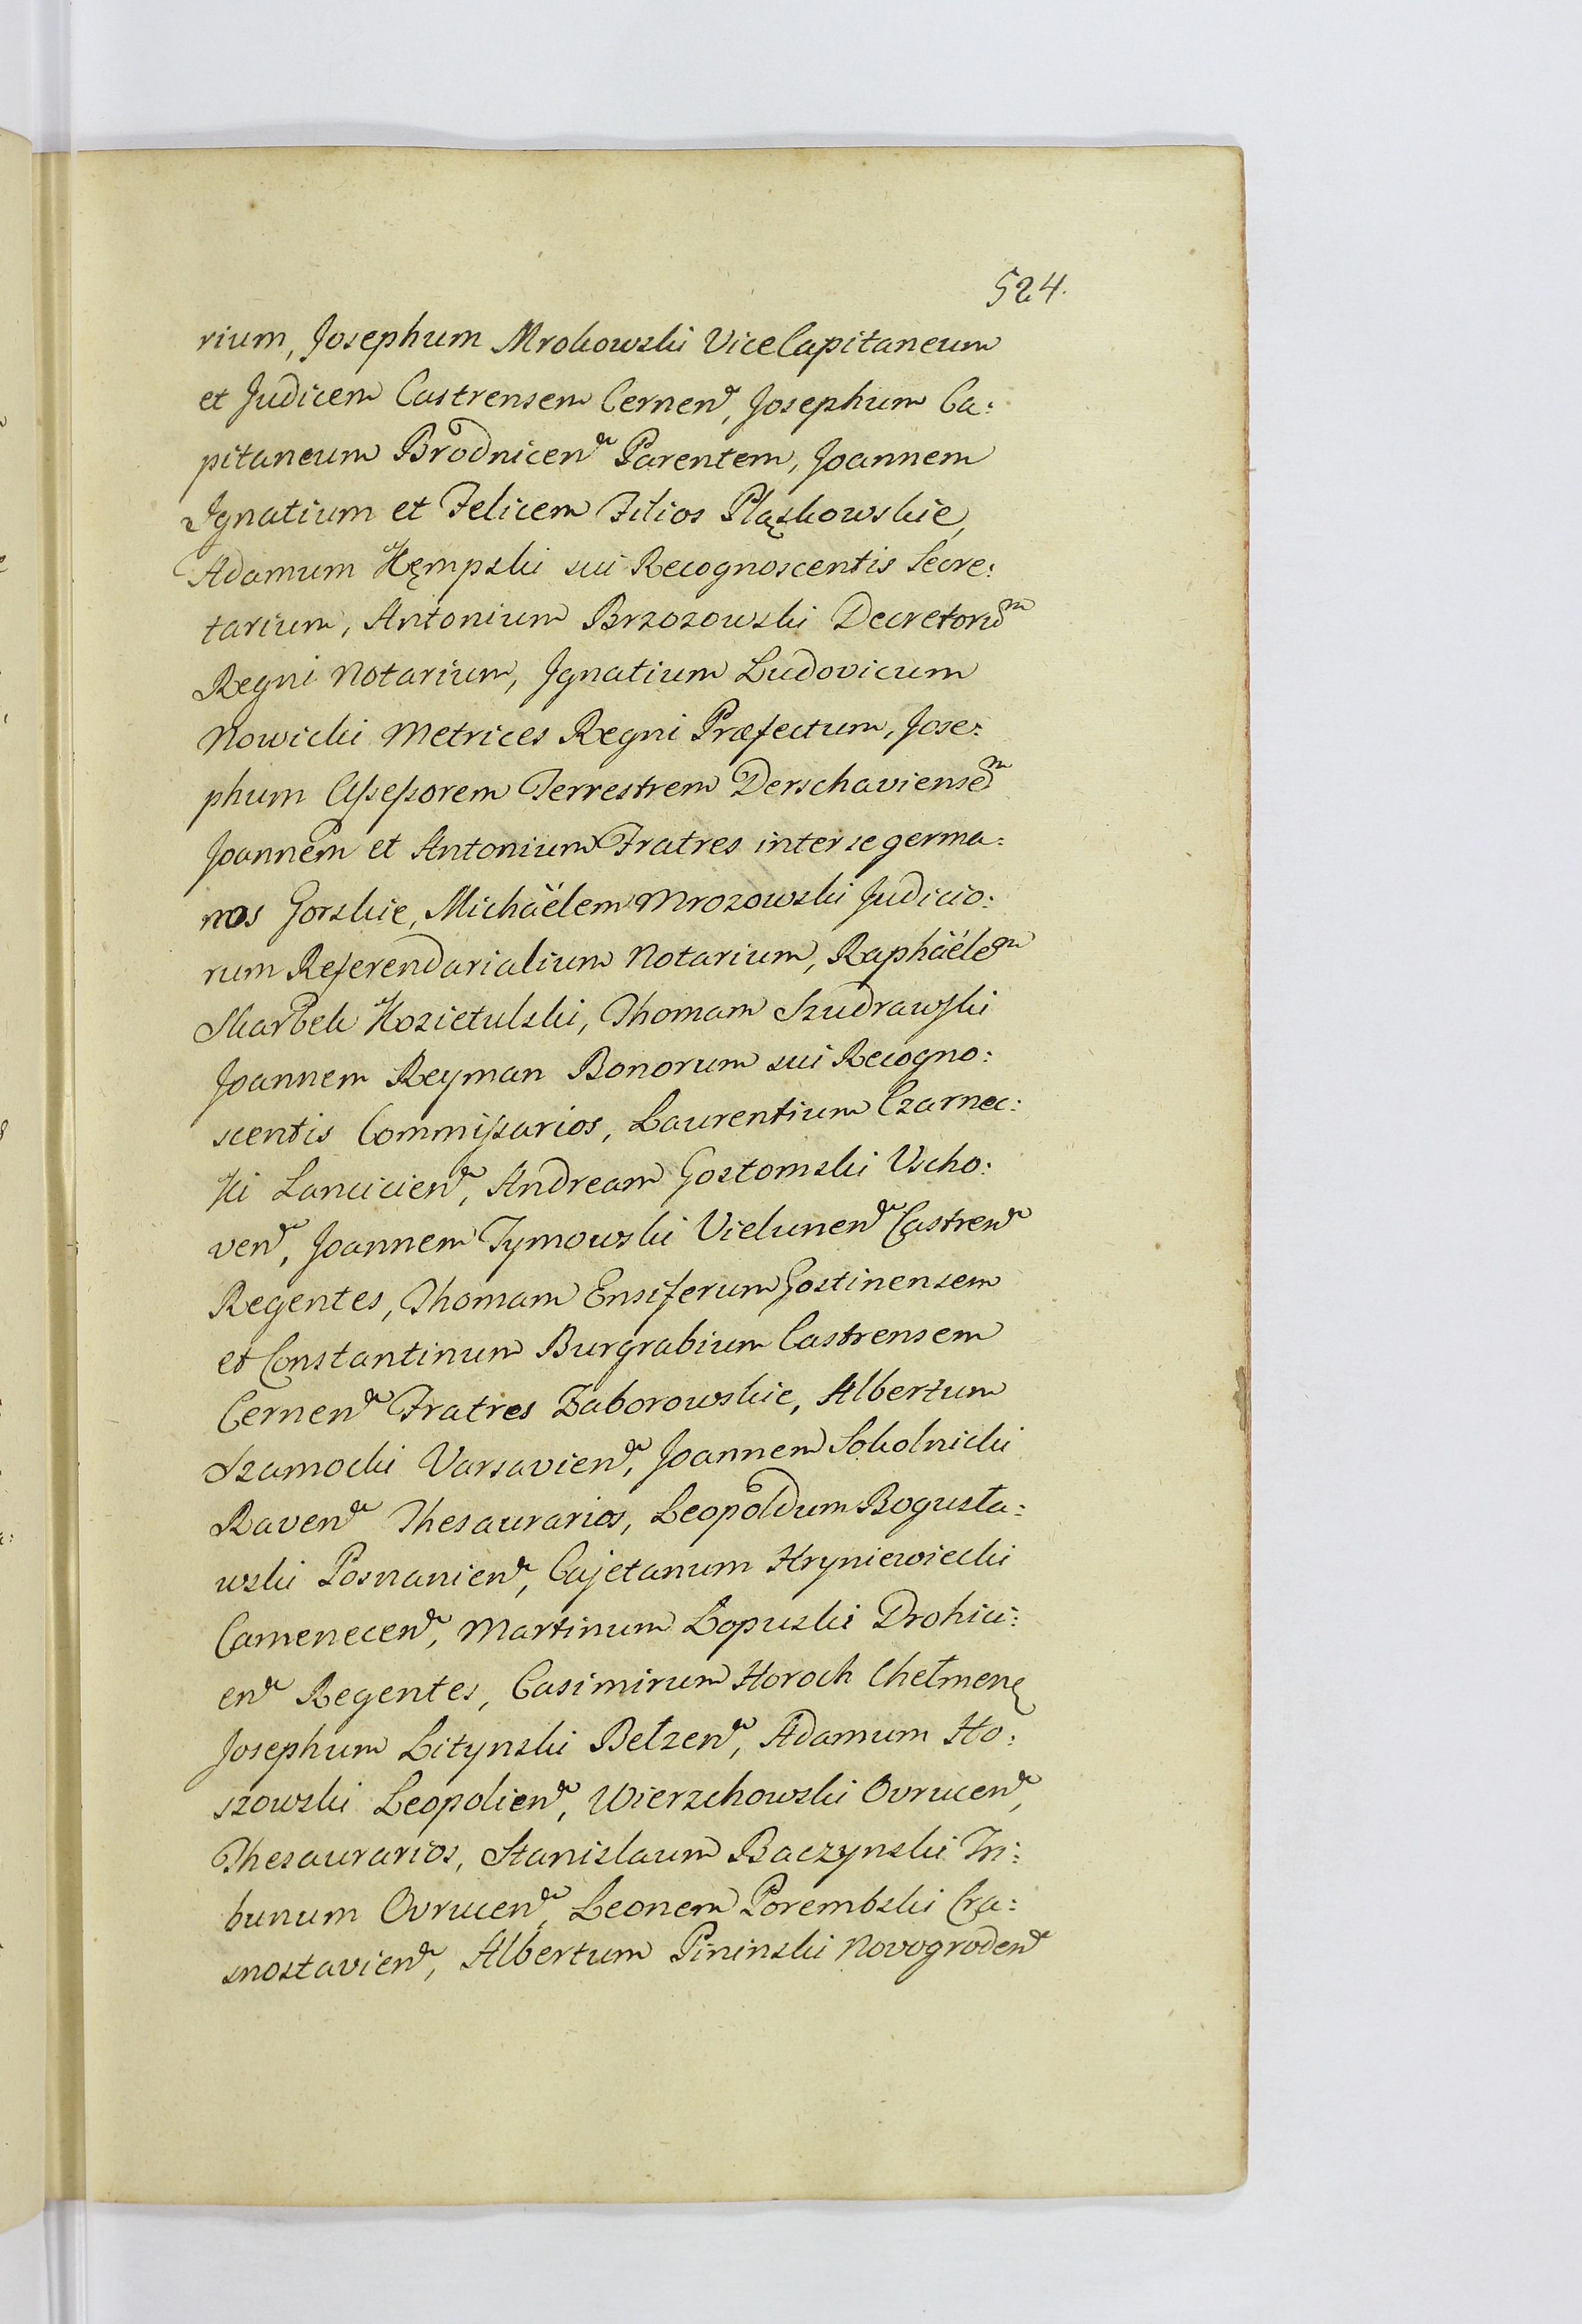 524.
rium, Josephum Mrokowski ViceCapitaneum
et Judicem Castrensem Cernen, Josephum Ca:
pitaneum Brodnicen Parentem, Joannem
Ignatium et Felicem Filios Pląskowskie,
Adamum Kęmpski sui Recognoscentis Secre:
tarium, Antonium Brzozowski Decretorum
Regni Notarium, Ignatium Ludovicum
Nowicki Metrices Regni Præfectum, Jose:
phum Assessorem Terrestrem Derschaviensem
Joannem et Antonium Fratres inter se germa:
nos Gorskie, Michäelem Mrozowski Judicio:
rum Referendarialium Notarium, Raphäelem
Skarbek Kozietulski, Thomam Szudrawski
Joannem Reyman Bonorum sui Recogno:
scentis Commissarios, Laurentium Czarnec:
ki Lancicien, Andream Gostomski Vscho:
ven, Joannem Tymowski Vielunen Castren
Regentes, Thomam Ensiferum Gostinensem
et Constantinum Burgrabium Castrensem
Cernen Fratres Zaborowskie, Albertum
Szamocki Varsavien, Joannem Sokolnicki
Raven Thesaurarios, Leopoldum Bogusła:
wski Posnanien, Cajetanum Hryniewiecki
Camenecen, Martinum Łopuski Drohici:
en Regentes, Casimirum Horoch Chełmen
Josephum Litynski Bełzen, Adamum Ho:
szowski Leopolien, Wierzchowski Ovrucen,
Thesaurarios, Stanislaum Baczynski Tri:
bunum Ovrucen, Leonem Porembski Cra:
snostavien, Albertum Pininski Novogroden